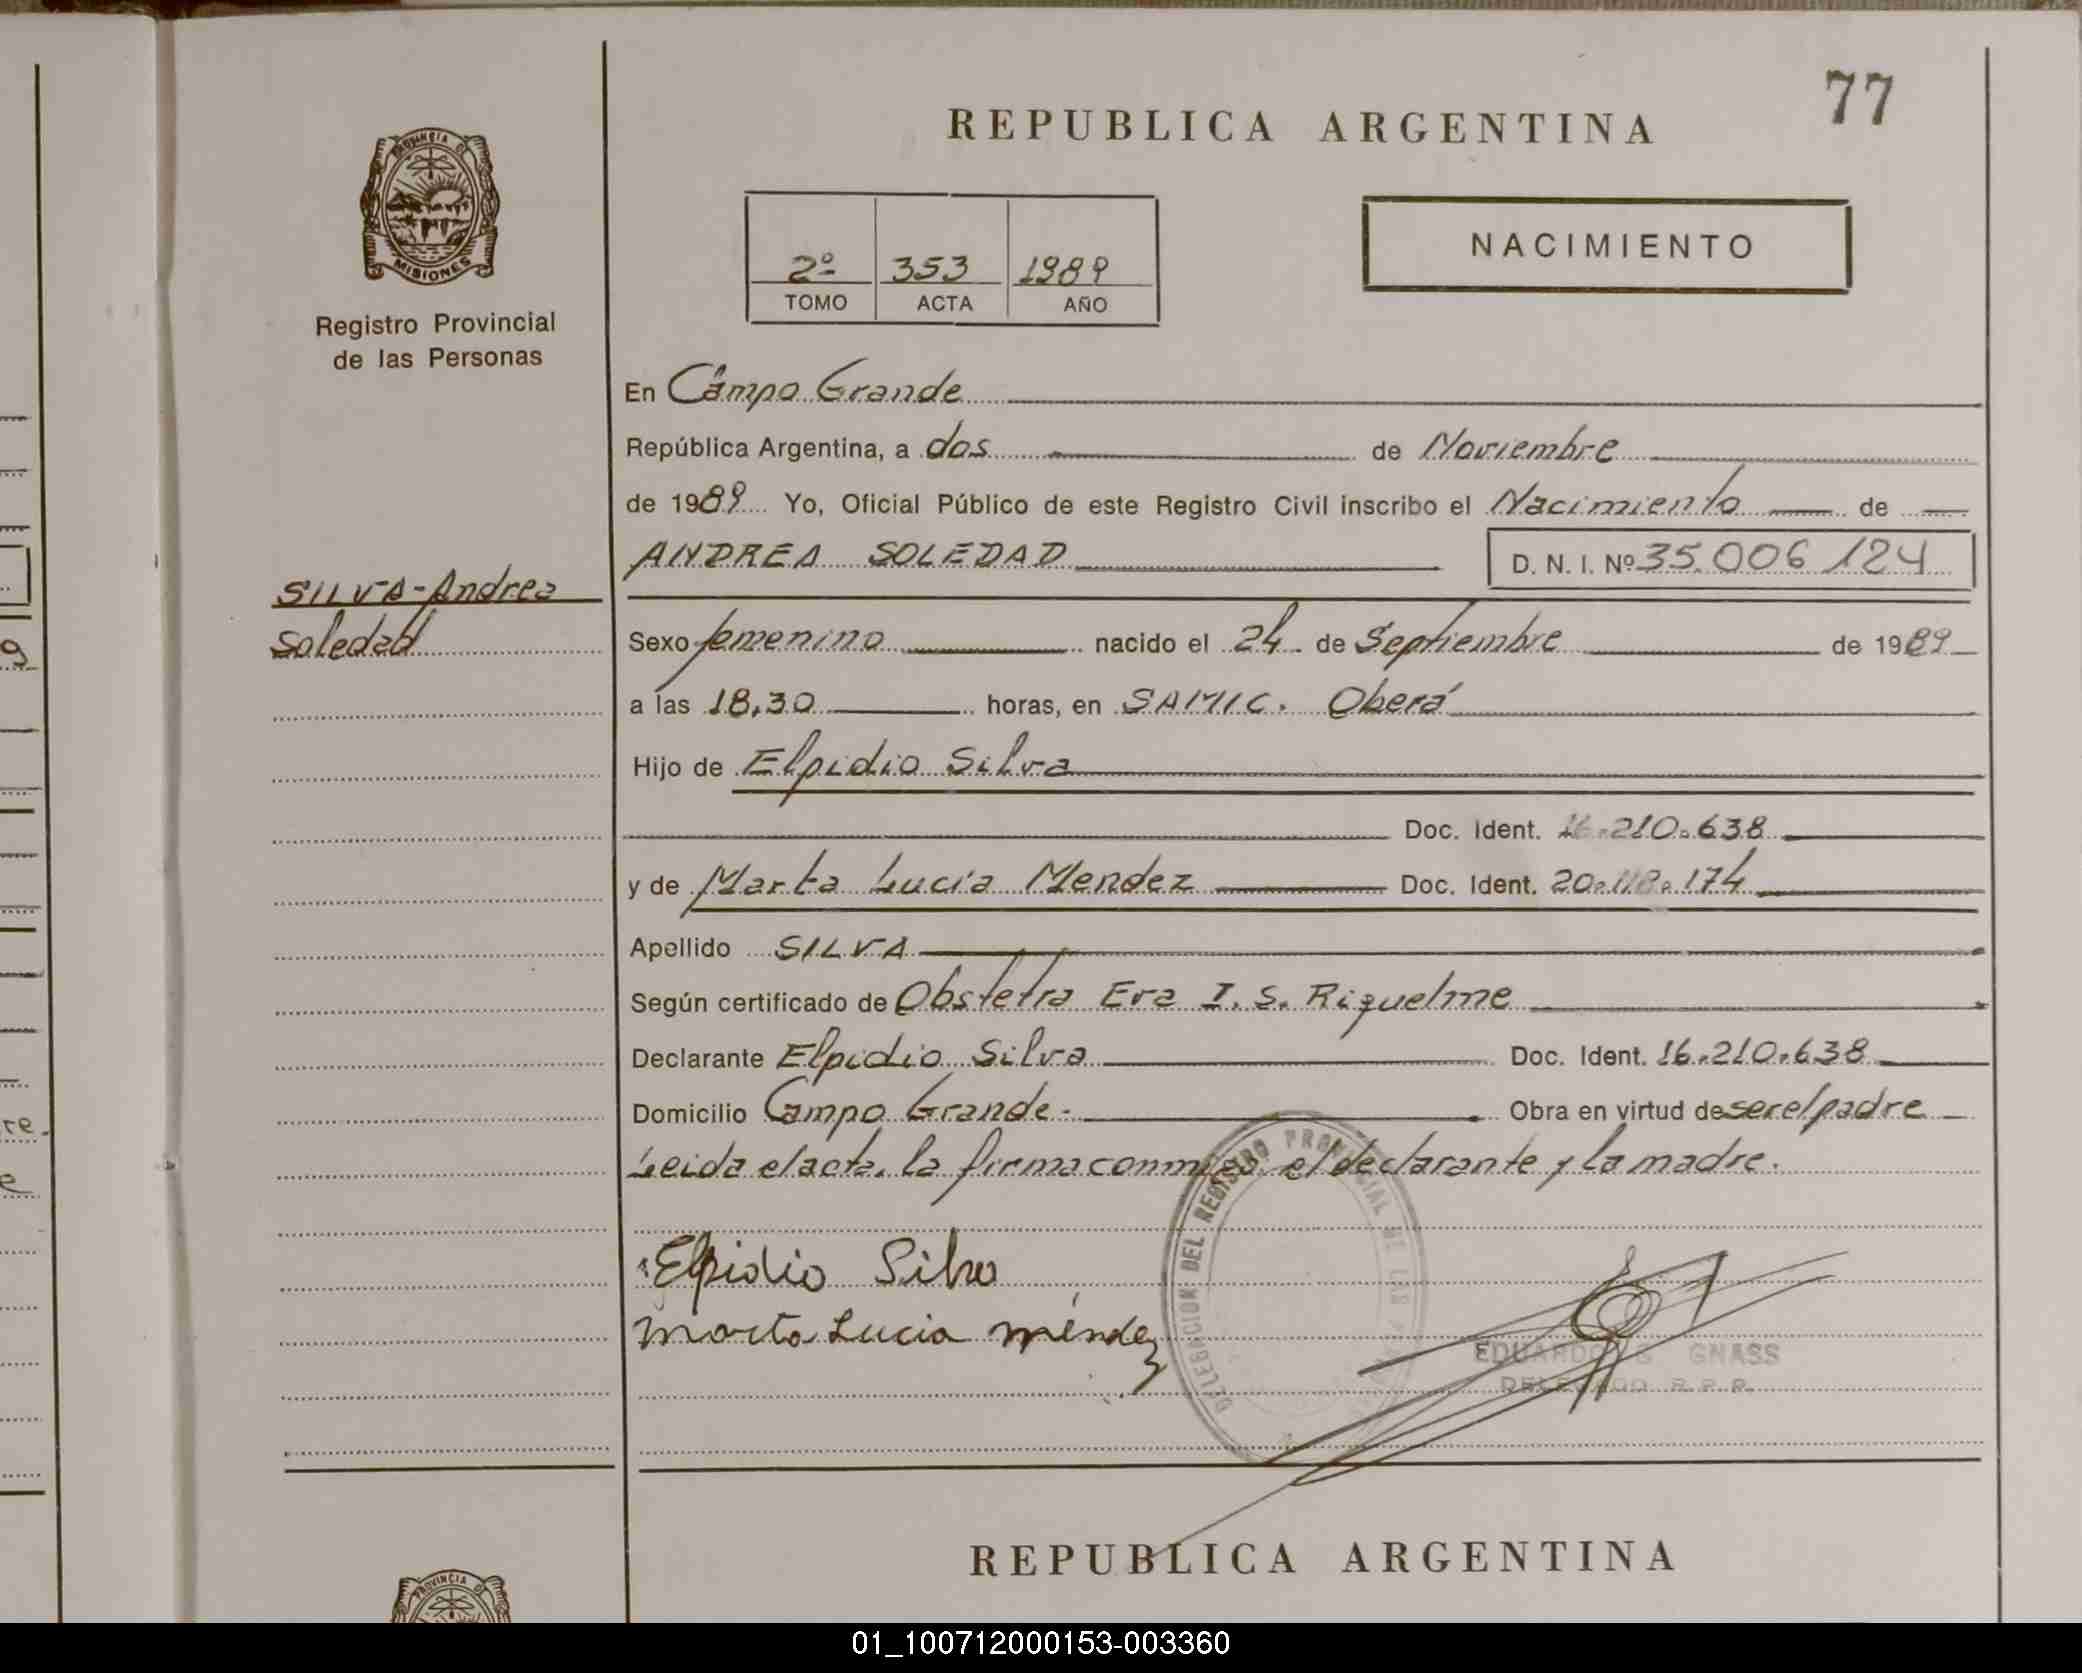 77
REPUBLICA ARGENTINA
PROVINCIA DE
MISIONES
Registro Provincial
de las Personas
NACIMIENTO
2º 353 1989
TOMO ACTA AÑO
En Campo Grande
República Argentina, a dos de Noviembre
de 1989 Yo, Oficial Público de este Registro Civil inscribo el Nacimiento de
ANDREA SOLEDAD D. N. I. Nº 35.006 124
SILVA-Andrea
Soledad
Sexo femenino nacido el 24 de Septiembre de 1989
a las 18,30 horas, en SAMIC. Oberá
Hijo de Elpidio Silva
Doc. Ident. 16.210.638
y de Marta Lucía Mendez Doc. Ident. 20.118.174
Apellido SILVA
Según certificado de Obstetra Eva I. S. Riquelme
Declarante Elpidio Silva Doc. Ident. 16.210.638
Domicilio Campo Grande.- Obra en virtud de ser el padre
Leida el acta, la firma conmigo el declarante y la madre.
DELEGACION DEL REGISTRO PROVINCIAL DE LAS
Elpidio Silva
Marta Lucia Méndez
EDUARDO GNASS
DELEGADO R.P.P.
REPUBLICA ARGENTINA
PROVINCIA DE
01_100712000153-003360